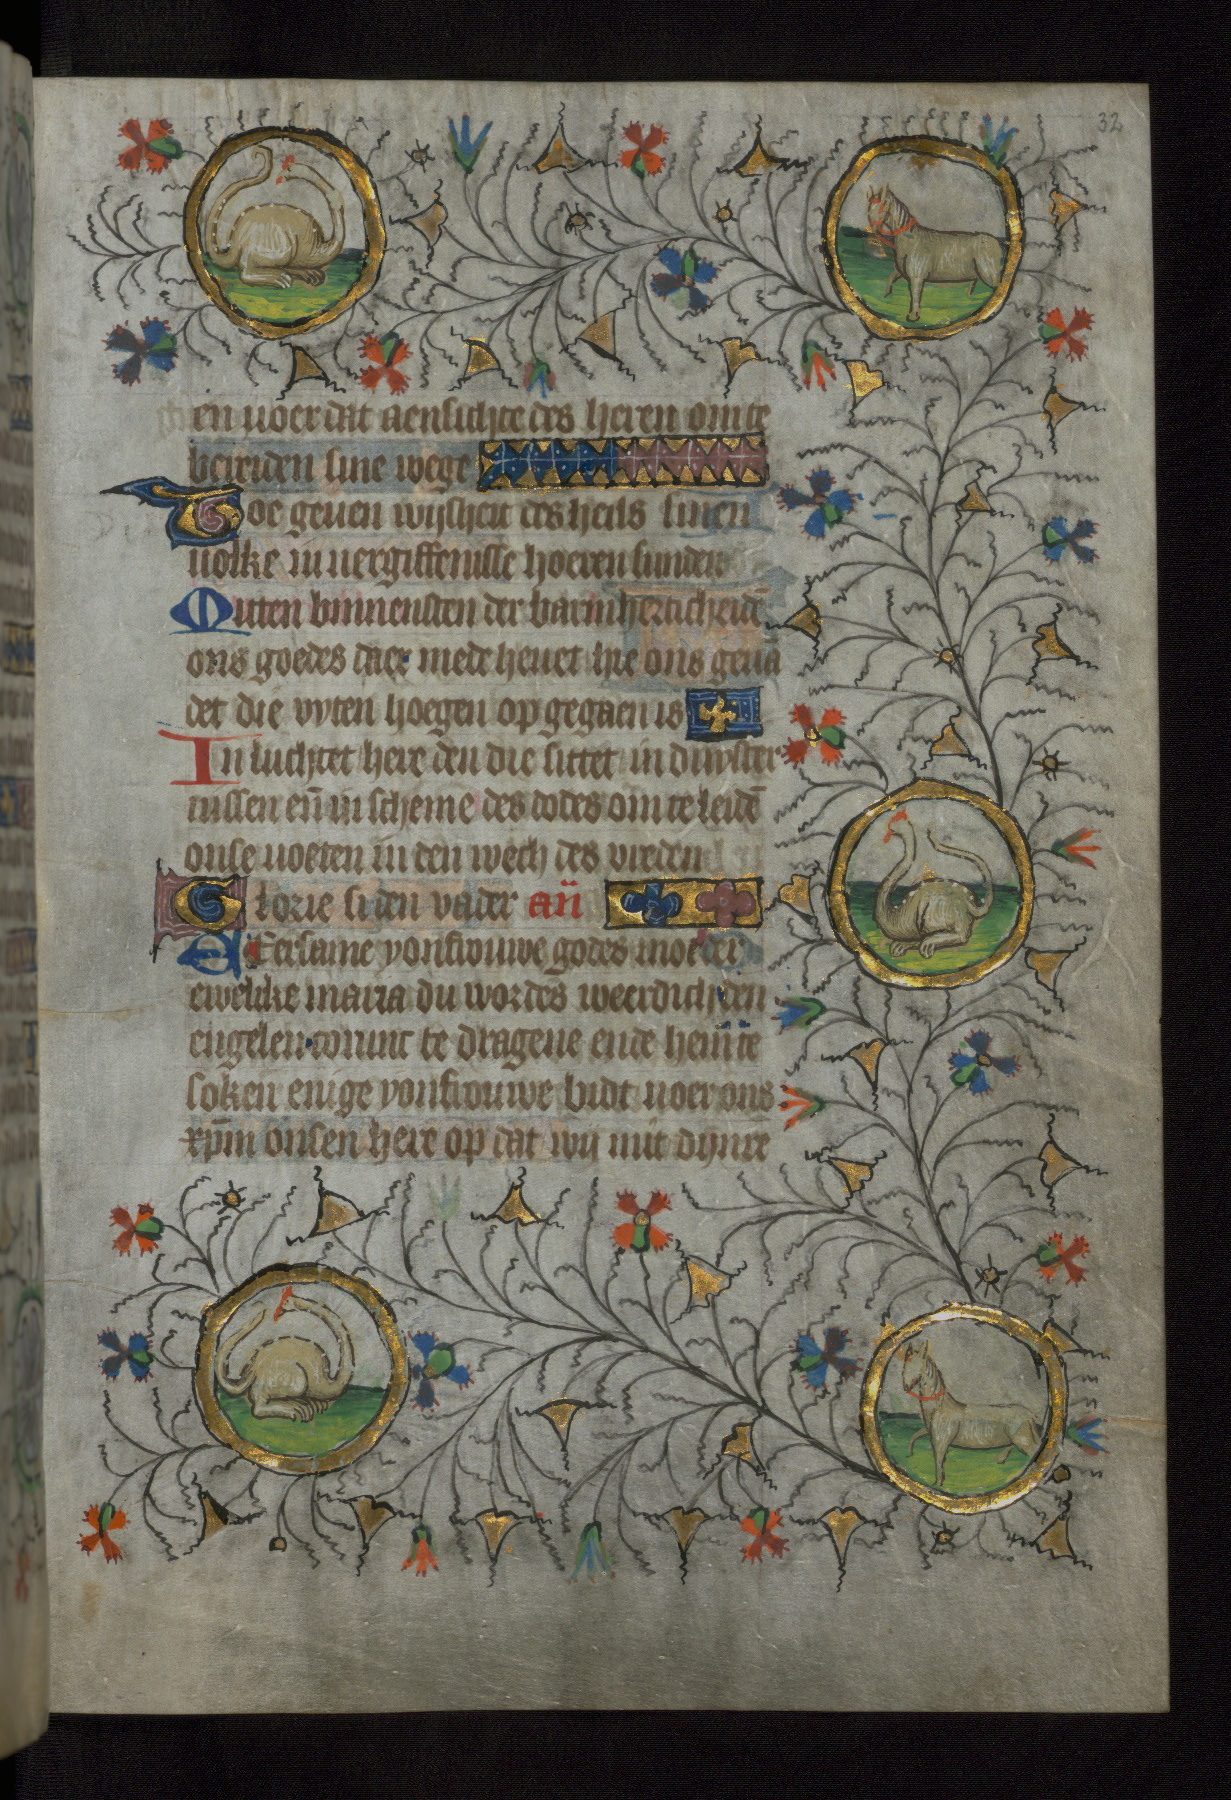 32
en voer dat aensichte des heren om te
bereiden sine wege
Toe geuen wijsheit des heils sinen
volke in vergiffenisse hoeren sunden
Mitten binnensten der barmherticheidē
ons godes daer mede heuet hie ons geuā
det die vyten hoegen op gegaen is
In luchtet here den die sittet in duyster
nissen eñ in scheme des dodes om te leidē
onse voeten in den wech des vreden
Glorie si den vader añ
Eersame yonfrouwe godes moeder
ewelike maria du wordes weerdich den
engelen comnt te dragene ende hem te
soken enige yonfrouwe bidt voer ons
xp̄m onsen here op dat wij mit dynre